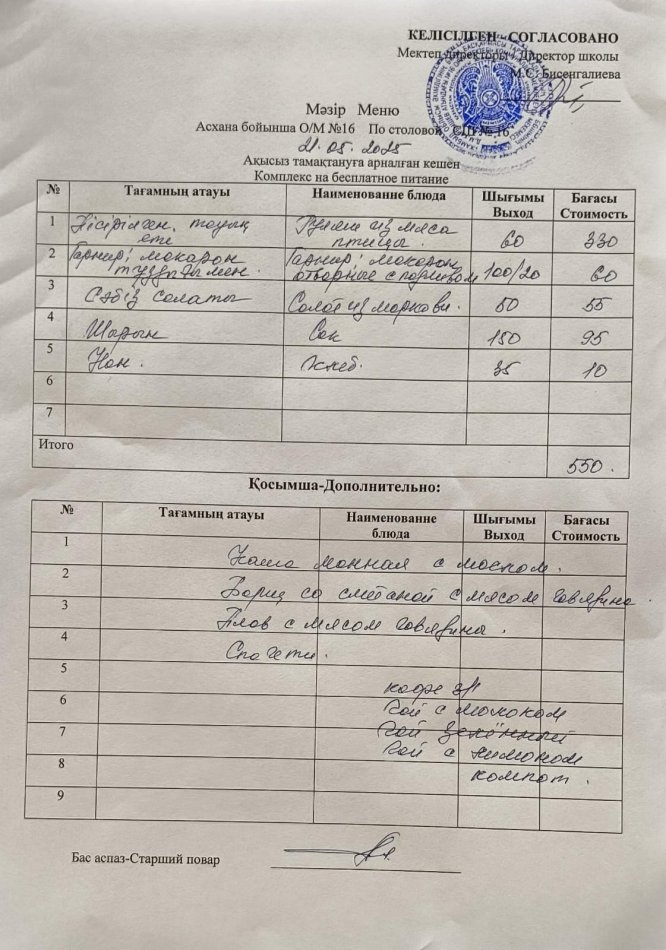 КЕЛІСІЛГЕН СОГЛАСОВАНО
Мектеп директоры Директор школы
М.С. Бисенгалиева
Мәзір Меню
Асхана бойынша О/М №16 По столовой СШ № 16
21.05.2025
Ақысыз тамақтануға арналған кешен
Комплекс на бесплатное питание
№ Тағамның атауы Наименование блюда Шығымы Выход Бағасы Стоимость
1 Пісірілген тауық еті из мяса птицы. 60 330
2 Гарнир; макарон тұздығымен. Гарнир; макарон отворные с подливом 100/20 60
3 Сәбіз салаты Салат из моркови. 50 55
4 Шырын Сок 150 95
5 Нан. Хлеб. 35 10
6
7
Итого 550.
Қосымша-Дополнительно:
№ Тағамның атауы Наименование блюда Шығымы Выход Бағасы Стоимость
1 Каша манная с маслом.
2 Борщ со сметаной с мясом говядина.
3 Плов с мясом говядины.
4 Спагети.
5 кофе 3/1
6 Чай с молоком
7 Чай зелённый
Чай с лимоном
8 компот.
9
Бас аспаз-Старший повар